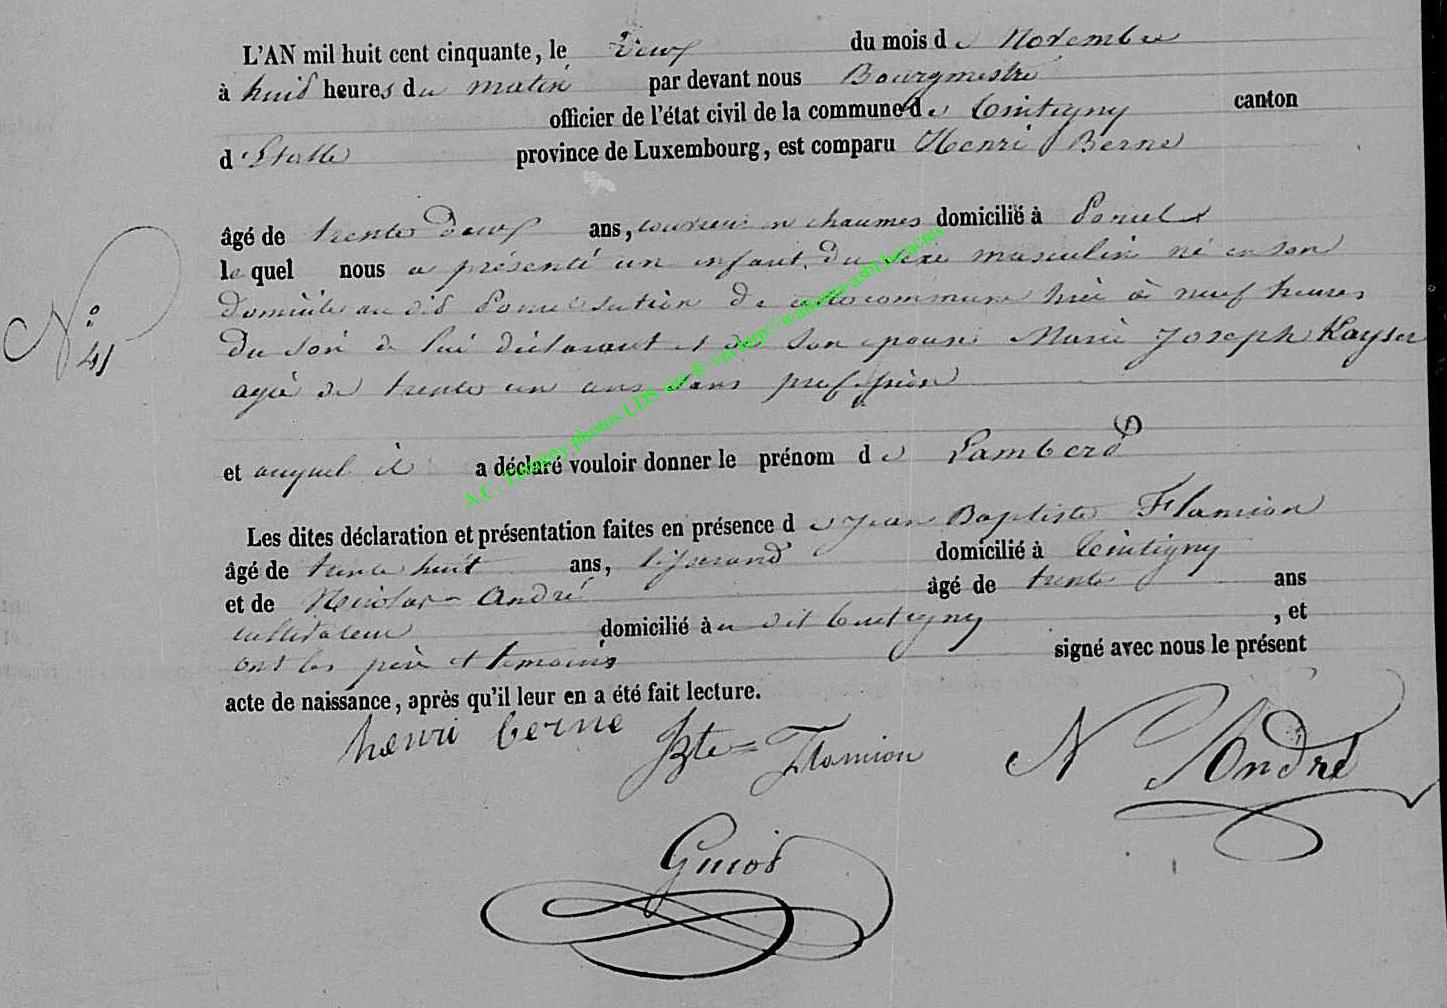 L'AN mil huit cent cinquante, le deux du mois de Novembre
à huit heures du matin par devant nous Bourgmestre
officier de l'état civil de la commune de Tintigny canton
d'Etalle province de Luxembourg, est comparu Henri Berne
âgé de trente deux ans, couvreur en chaumes domicilié à Poncel
le quel nous a présenté un enfant du sexe masculin né en son
domicile au dit Poncel section de cette commune hier à neuf heures
du soir de lui déclarant et de son épouse Marie Joseph Kayser
agée de trente un ans sans profession
N° 41
et auquel il a déclaré vouloir donner le prénom de Lambert
Les dites déclaration et présentation faites en présence de Jean Baptiste Flamion
âgé de trente huit ans, tisserand domicilié à Tintigny
et de Nicolas André âgé de trente ans
cultivateur domicilié à au dit Tintigny, et
ont les père et temoins signé avec nous le présent
acte de naissance, après qu'il leur en a été fait lecture.
henri berne Bte= Flamion N André
Guiot
A.C. Tintigny photos LDS via http://wallonia-asbl.be/actes